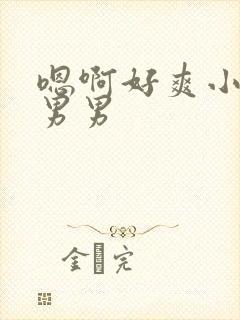 嗯啊好爽小
男男
金 完